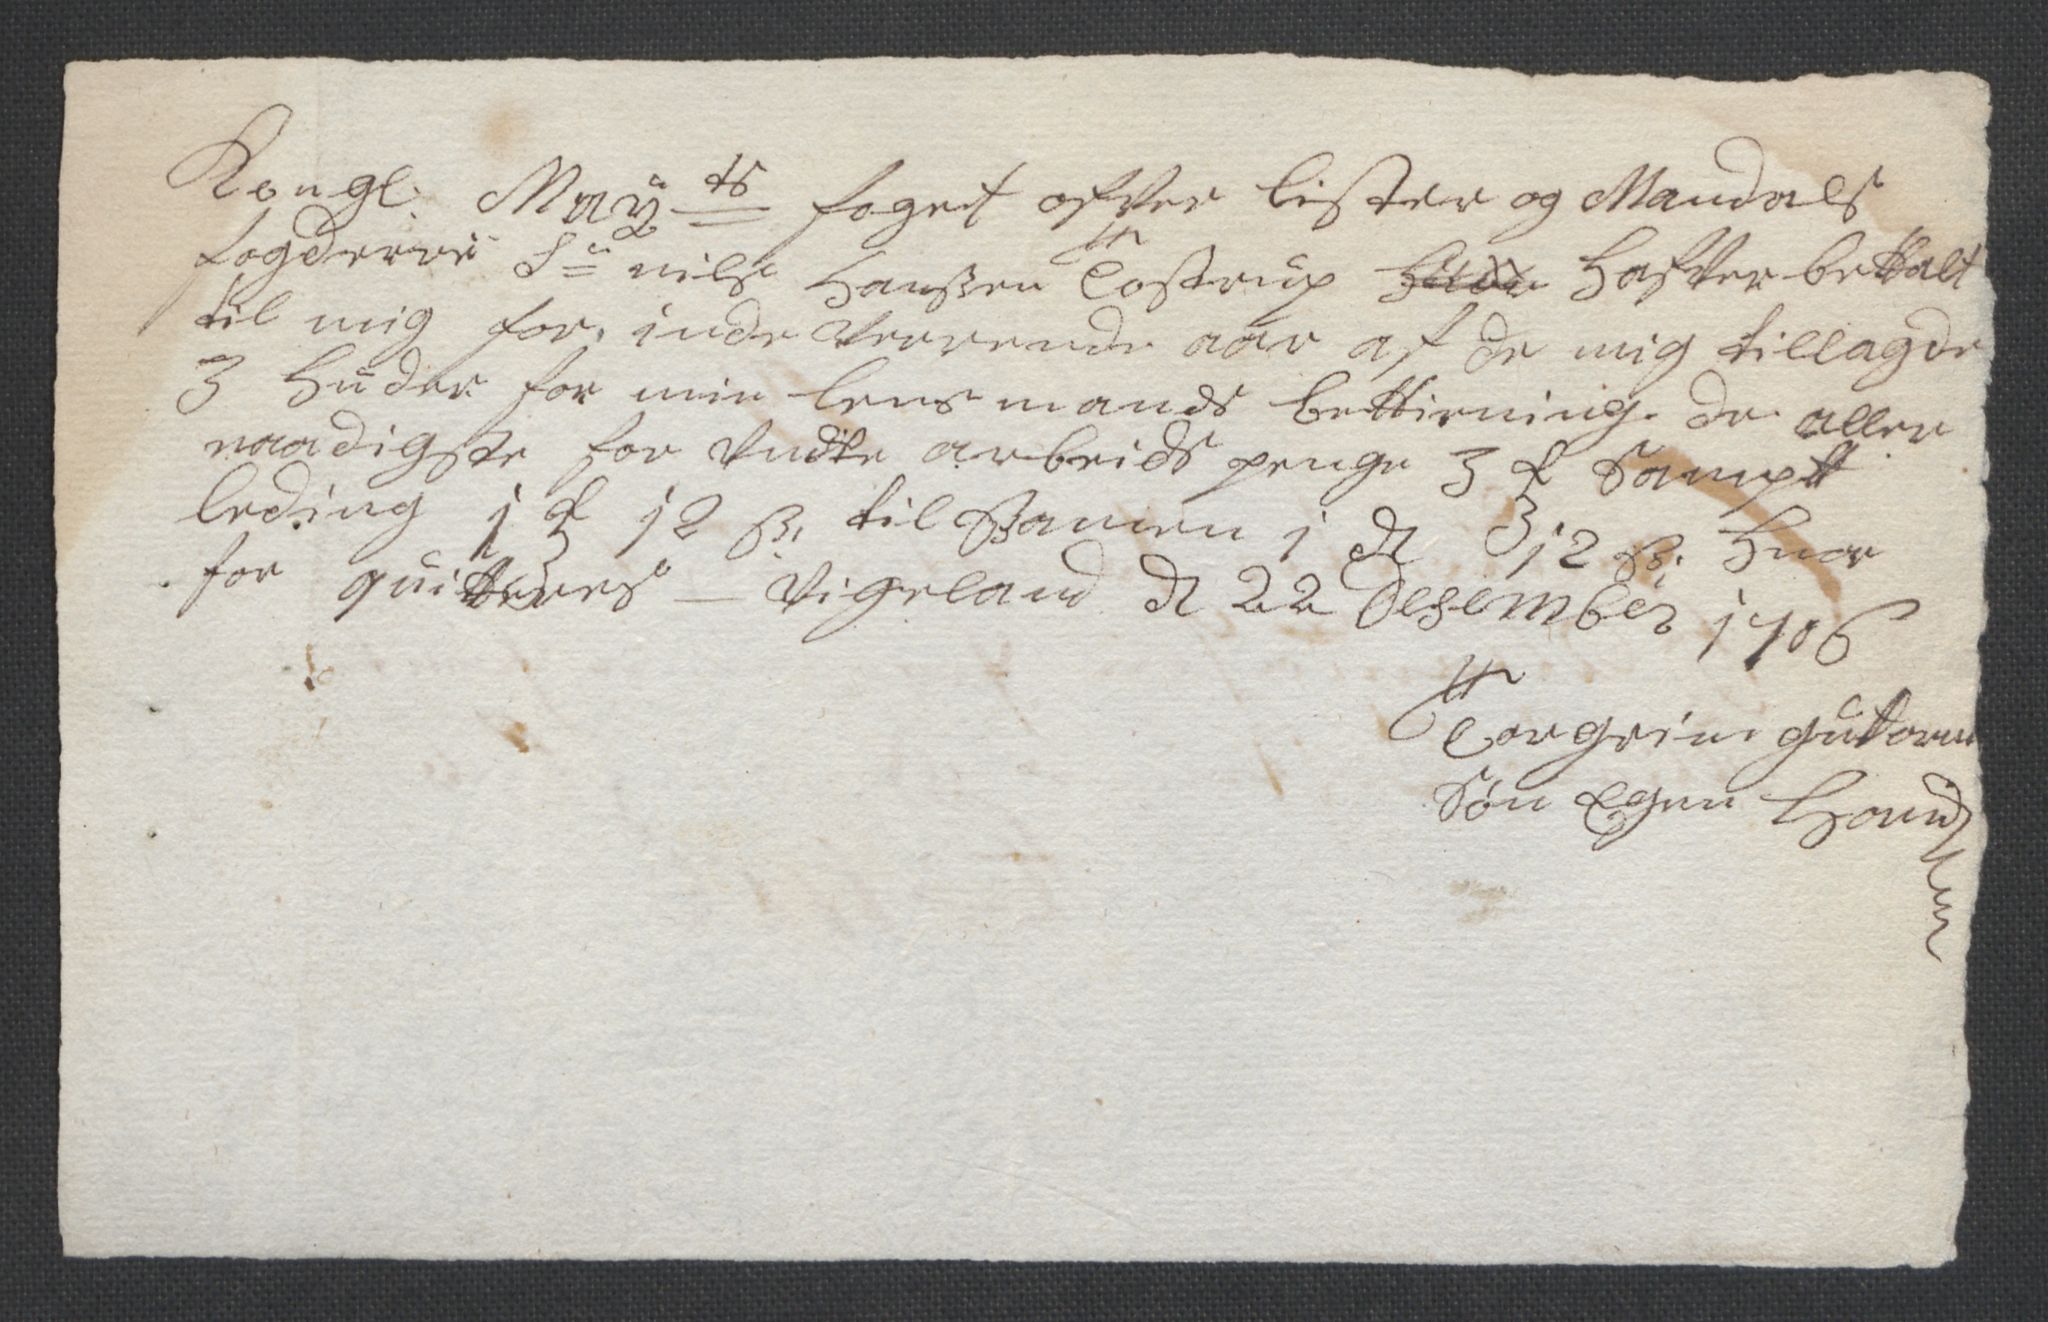 Kongl. May:ts foget ofver Lister og Mandals
fogderrie Sr nils Hansen Tostrup hafver betalt
til mig for inde Verrende aar af de mig tillagde
3 huder for min lens mands bettiening. de aller
naadigste for undte arbeids penge 3 ₰ Sampt
leding 1 ₰ 12 β. til Samen 1 rd 3 12 β. huor
for quitteres — Vigeland d 22 Desember 1706
Torgrim guttorm
Søn Egen Haand